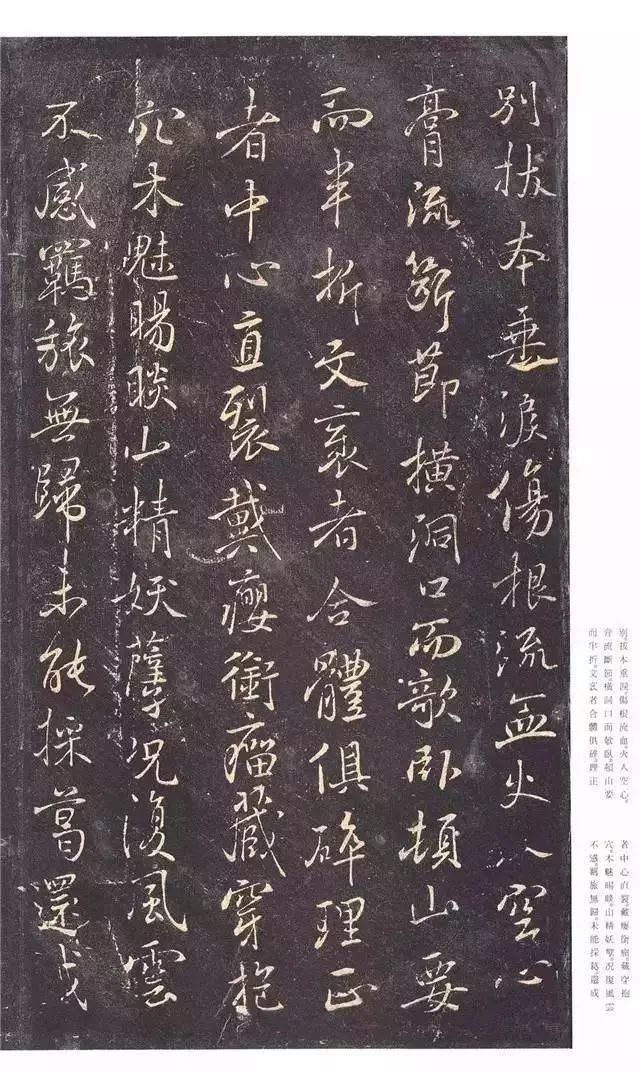 別拔本垂淚傷根流血火入空心
膏流斷節橫洞口而敧臥頓山要
而半折文袤者合體俱碎理正
者中心直裂戴癭銜瘤藏穿抱
穴木魅睗睒山精妖孽況復風雲
不感羈旅無歸未能採葛還成
別。拔本垂淚。傷根流血。火入空心。
膏流斷節。橫洞口而敧臥。頓山要
而半折。文袤者合體俱碎。理正
者中心直裂。戴癭銜瘤。藏穿抱
穴。木魅睗睒。山精妖孽。況復風雲
不感。羈旅無歸。未能採葛。還成